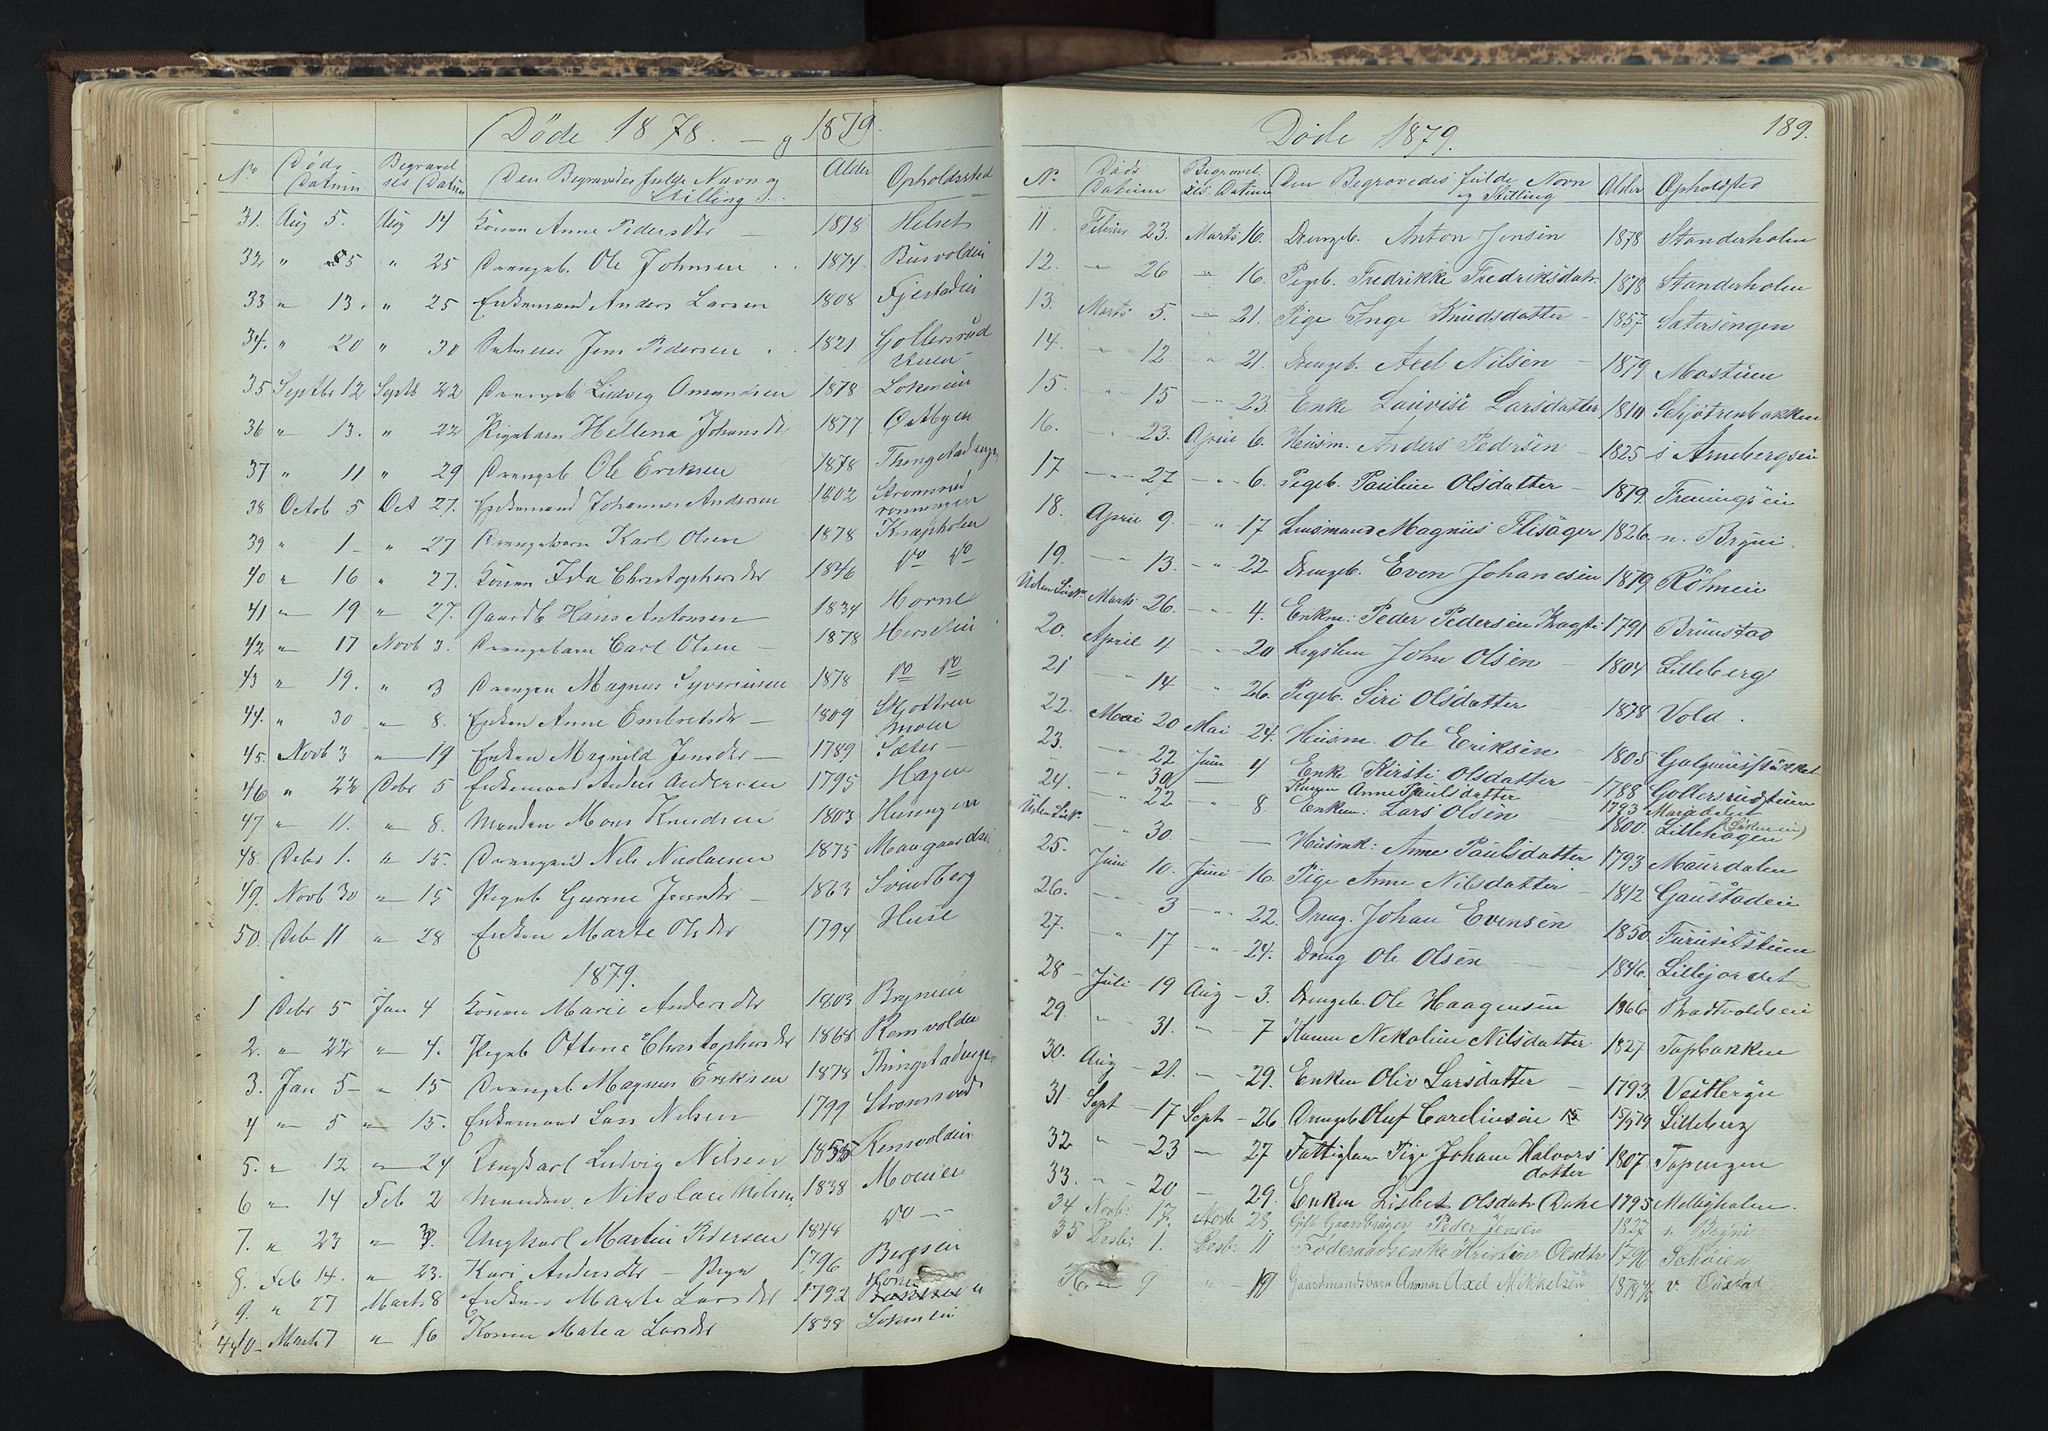 Døde 1878. — g 1879.
No Døds Datum Begravelses Datum Den Begravedes fulde Navn og Stilling. Alder Opholdssted
31. Aug 5. Aug 14 Konen Anne Pedersdtr — 1818 Helset
32 " 5 " 25 Drengeb. Ole Johnsen 1874 Busvolden
33 " 13. " 25 Enkemand Anders Larsen 1808 Fjestadei
34. " 20 " 30 Jens Pedersen 1821 Gollersrud
35 Septbr 12 Septb 22 Drengeb Ludvig Amundsen 1878 Lokenein
36 " 13. " 22 Pigebarn Hellena Johansdtr 1877 Østbyen
37 " 11 " 29 Drengeb. Ole Eriksen 1878
38 Octob 5 Oct 27. Enkemand Johannes Andersen 1802 Strømsrud
39 " 1 — " 27 Drengebarn Karl Olsen 1878 Krapholen
40 " 16 " 27. Konen Ida Christophersdtr 1846 Do Do
41 " 19 " 27. Gaardb Hans Antonsen 1834 Horne
42 " 17 Novb 3. Drengebarn Carl Olsen — 1878
43 " 19. " 3 Drengen Magnus Syversen 1878 Do Do
44. " 30 " 8. Enken Anne Embretsdtr — 1809 Skjøttren moen
45. Novb 3 " 19 Enken Magnild Jensdtr — 1789 Sæter —
46 " 22 Debr 5 Enkemand Anders Andersen 1795 Hagen
47 " 11. " 8. Manden Mons Knudsen 1803
48. Debr 1. " 15. Drengen Nils Nicolaisen 1875
49. Novb 30 " 15 Pigeb Gurine Jensdtr — 1863 Svendberg
50. Deb 11 " 28 Enken Marte Olsdtr 1794 Huse
1879.
1 Debr 5 Jan 4 Konen Marie Andersdtr 1803 Brynien
2. " 22 " 4. Pigeb Ottene Christophersdtr 1868 Rensvolden
3. Jan 5 — " 15 Drengeb Magnus Eriksen 1878
4 " 5 " 15. Enkemand Lars Nilsen 1799 Strømsrud
5. " 12 " 24 Ungkarl Ludvig Nilsen 1855 Rensvolden
6 " 14 Feb 2 Manden Nikolai Nilsen 1838 Moenie
7. " 23 " 3 Ungkarl Martin Pedersen 1848 Do —
8. Feb 14. " 23. Kari Andersdtr — 1796 Bergsein
9. " 27 Marts 8 Enken Marte Larsdtr 1792
10 — Marts 7 " 16 Konen Matea Larsdtr 1838 Lokenein
189.
Døde 1879.
No. Døds Datum Begravelses Datum Den Begravedes fulde Navn og Stilling Alder Opholdsted
11. Februar 23. Marts 16. Drengeb. Anton Jensen 1878 Standerholen
12. " 26 " 16. Pigeb. Fredrikke Fredriksdatr 1878 Standerholen
13. Marts 5. " 21. Pige Inge Knudsdatter — 1857 Satersengen
14. " 12 " 21. Drengeb. Axel Nilsen — 1879 Mostuen
15. " 15 " 23. Enke Lauvise Larsdatter 1810 Schjøtrenbakken
16. " 23. April 6. Husm. Anders Pedersen — 1825 s Arnebergsein
17 " 27 " 6. Pigeb. Pauline Olsdatter — 1879.
18. April 9. " 17 Lensmand Magnus Flisager 1826 n. Bryni.
19. " 13. " 22 Drengeb. Even Johanesen 1879
Uden Lisk Marts 26. " 4. Enkm. Peder Pedersen 1791 Brunstad
20. April 4 " 20 John Olsen — 1804 Lilleberg
21 " 14 " 26. Pigeb. Siri Olsdatter — 1878 Vold.
22. Mai 20 Mai — 24. Husm. Ole Eriksen — 1805
23. " 22 Juni — 4 Enke Kirsti Olsdatter — 1788 Gollersrudstuen
30 Konen Anne Paulsdatter 1793
24. " 22 " 8 Enkem. Lars Olsen 1800. Lillehagen
Uden Lisk. " 30. — Husmk: Anne Paulsdatter 1793 Maurdalen
25. Juni 10. Juni — 16. Pige Anne Nilsdatter — 1812 Gaustadeie
26. " 3 " 22. Dreng. Johan Evensen 1850
27. " 17 " 24. Dreng Ole Olsen — 1846. Lillejordet
28 — Juli — 19 Aug — 3. Drengeb. Ole Haagensen 1866
29. " 31. " 7 Konen Nekoline Nilsdatter 1827 Topbakken
30. Aug — 21. — 29. Enken Oliv Larsdatter — 1793
31. Sept — 17 Sept — 26 Drengeb Oluf Carelinsen 15/5 79 Lilleberg
32 " 23 — 27 Fattiglem Pige Johane Halvorsdatter 1807 Topengen
33. " 20 — 29. Enken Lisbet Olsdatr 1793
34 Novbr 17. Novb 23. Gift Gaardbruger Peder Jensen 1827 n. Bryni
35 Desbr 1. Desbr 11 Føderaadsenke Kristin Olsdtr 1796
9 " 19 Gaardmandsbarn Axel Mikkelsen 1879 v. Oustad